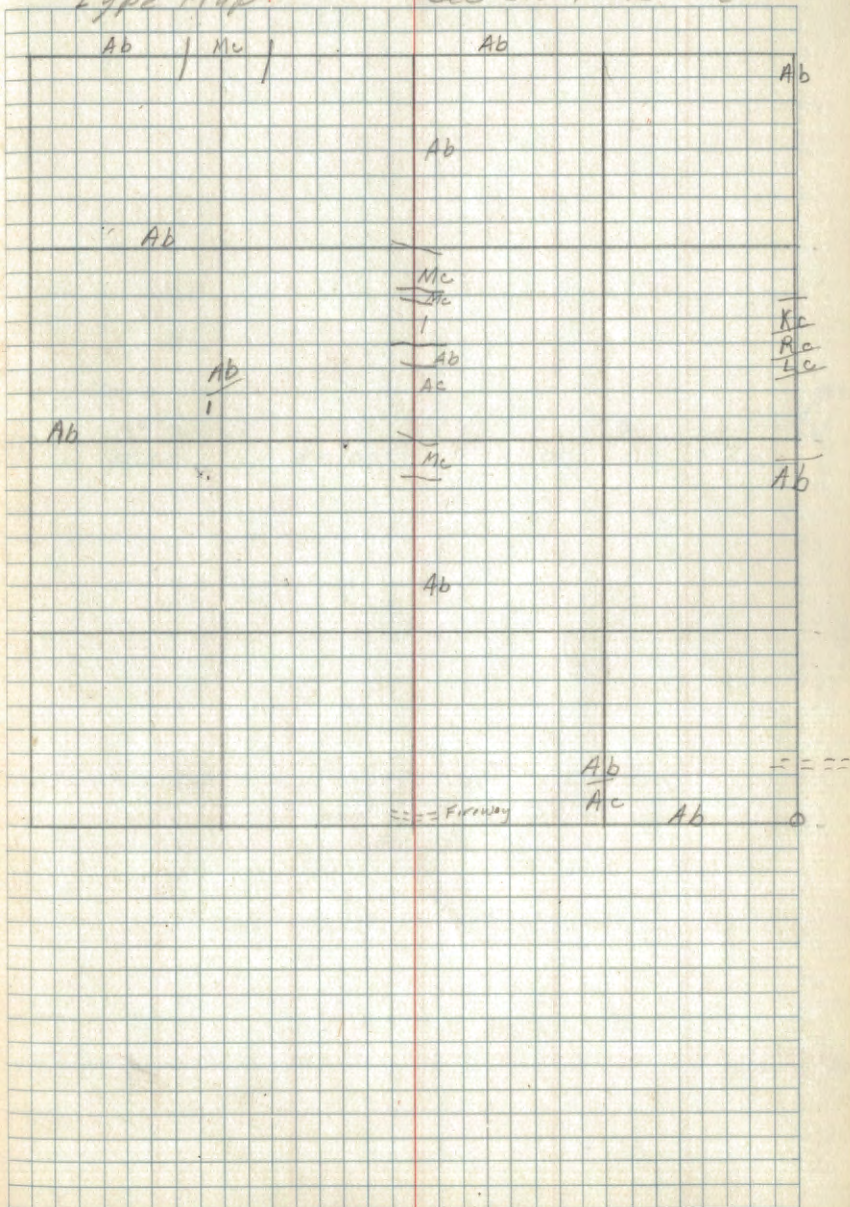 Type Map
Ab Mc Ab
Ab
Ab
Ab
Mc
Mc
Kc
1
Rc
Ab
Lc
Ab
Ac
1
Ab
Mc
Ab
Ab
Ab
Ac
Fireway
Ab